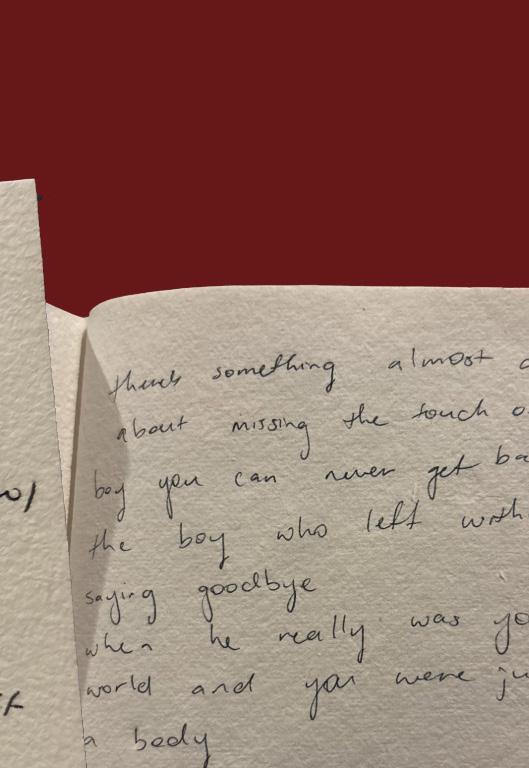 there's something almost
about missing the touch
boy you can never get
the boy who left
saying goodbye
when he really was
world and you were
a body